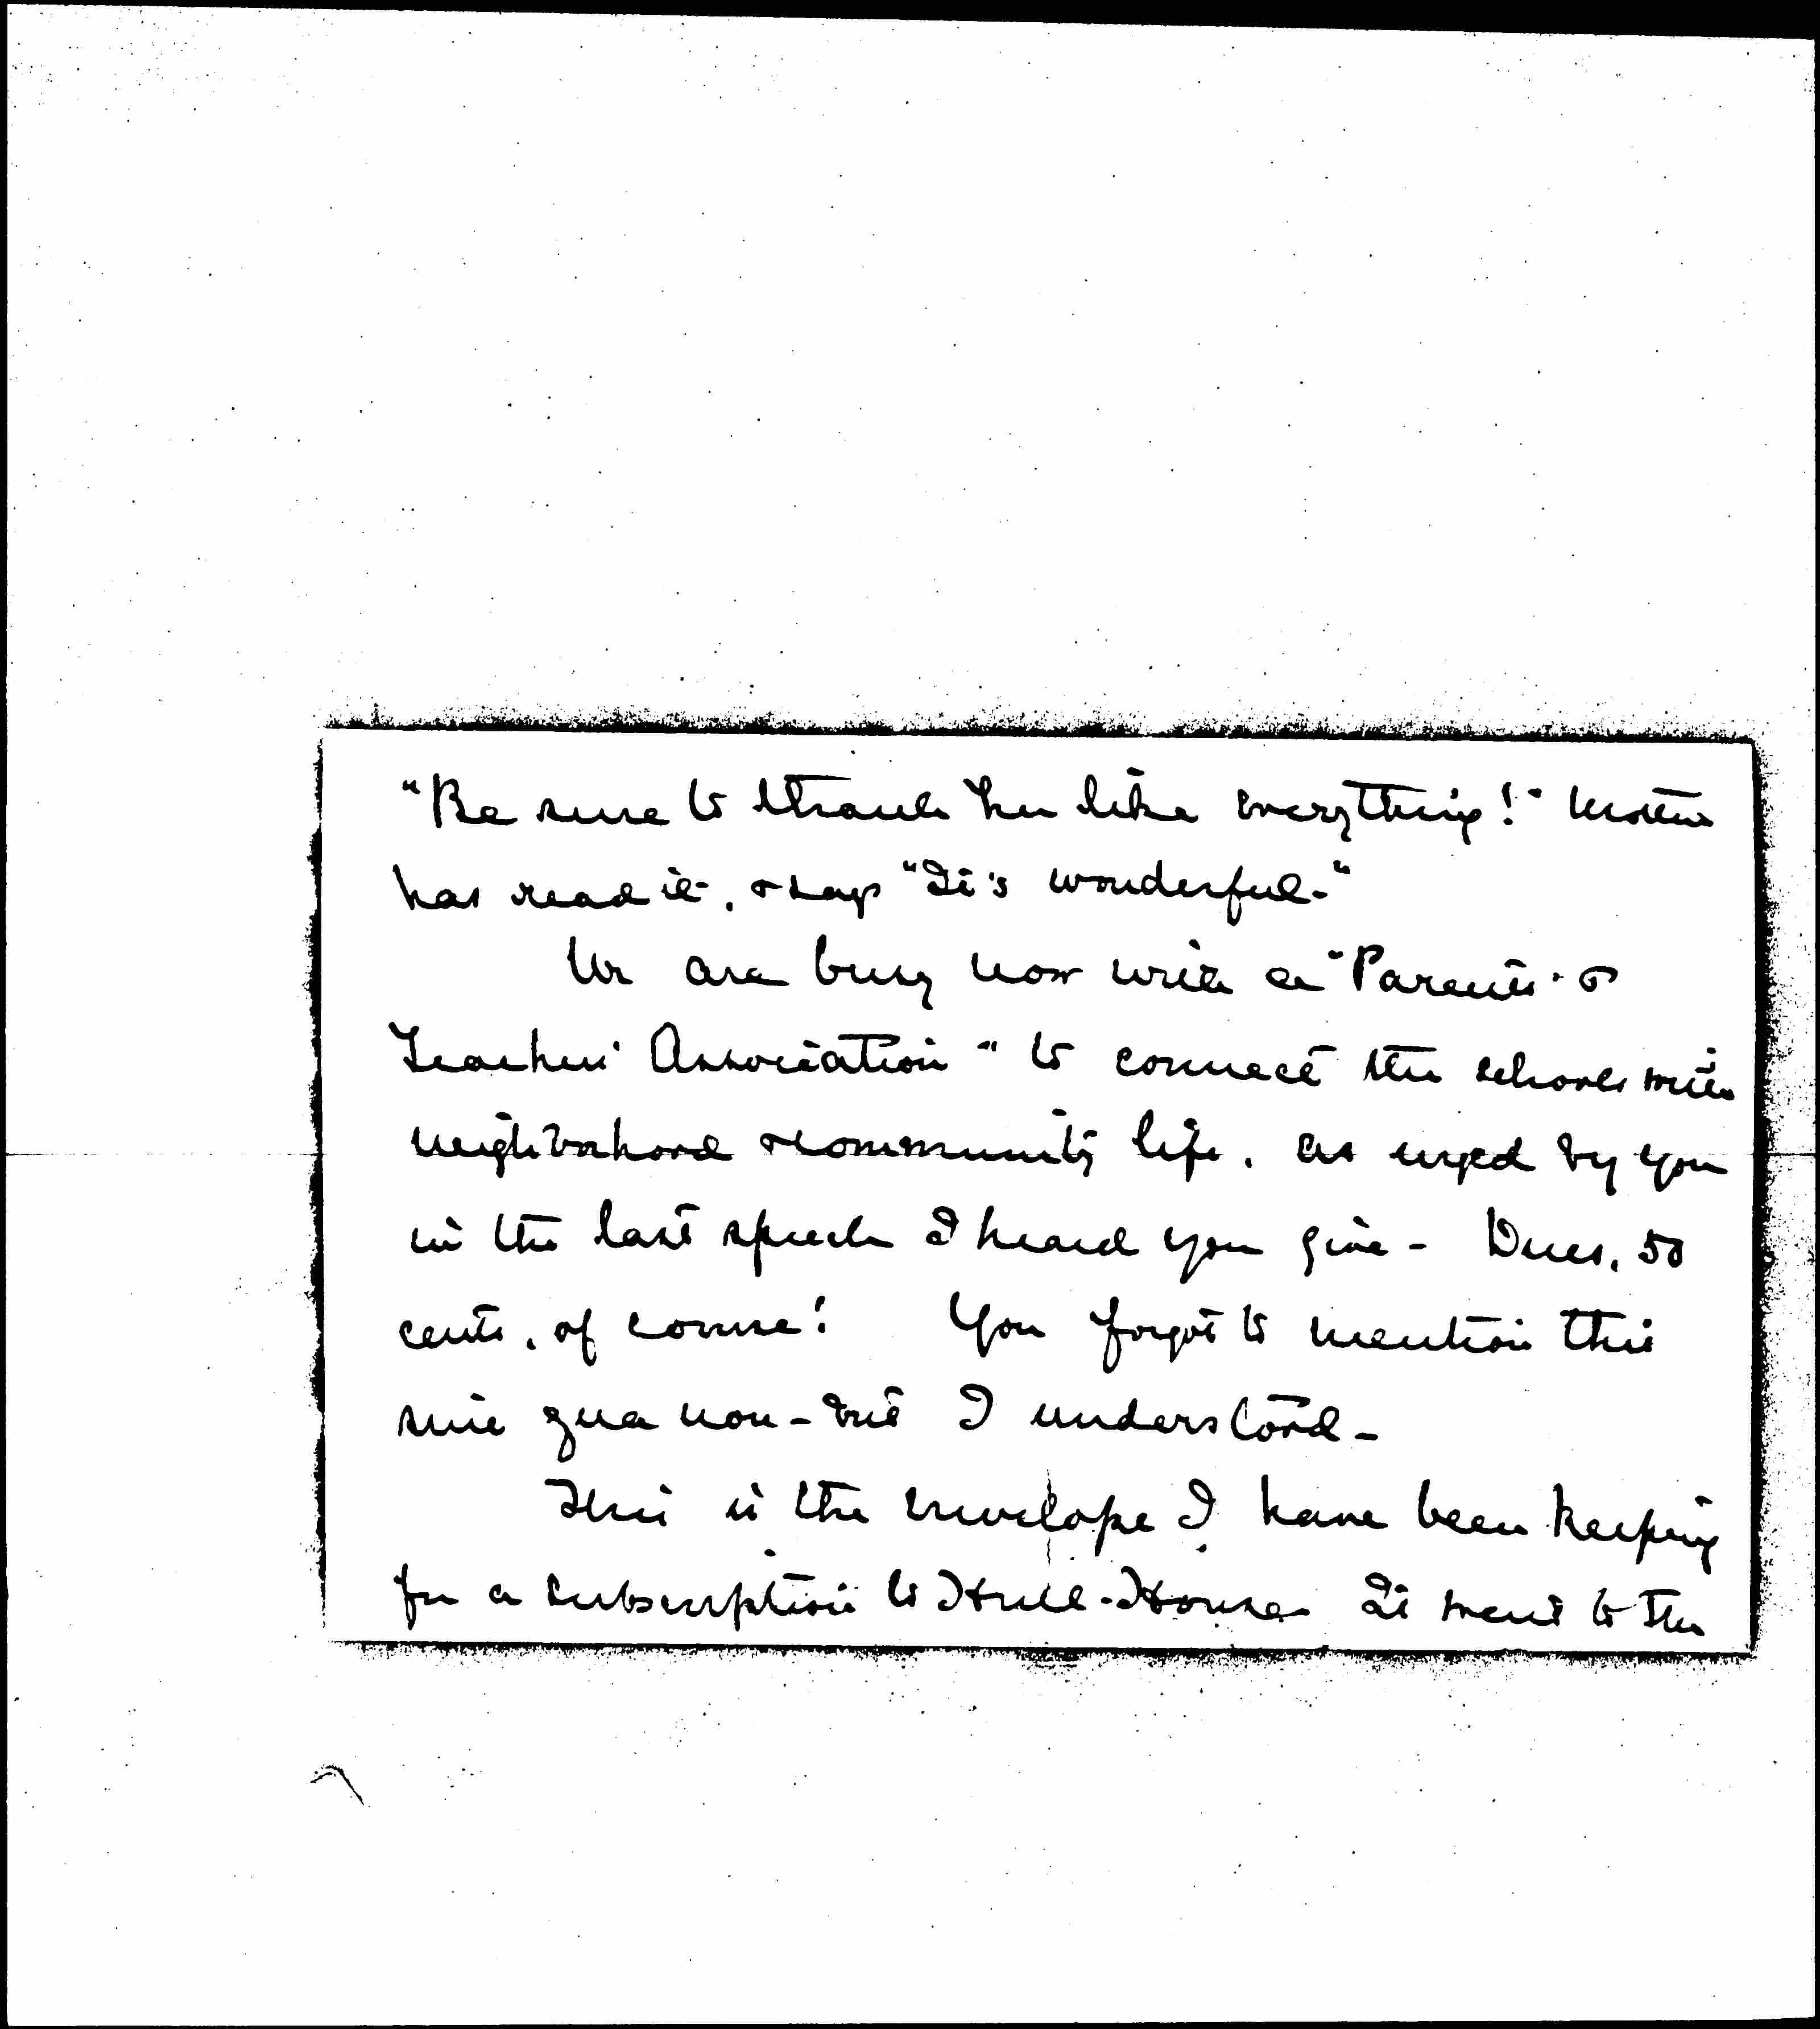 "Be sure to thank her like everything!" Mother
has read it, & says "It's wonderful."
We are busy now with a "Parents' &
Teachers' Association" to connect the schools with
neighborhood & community life, as urged by you
in the last speech I heard you give - Dues, 50
cents, of course! You forgot to mention this
sine qua non - but I understood -
This is the envelope I have been keeping
for a subscription to Hull-House. It went to the